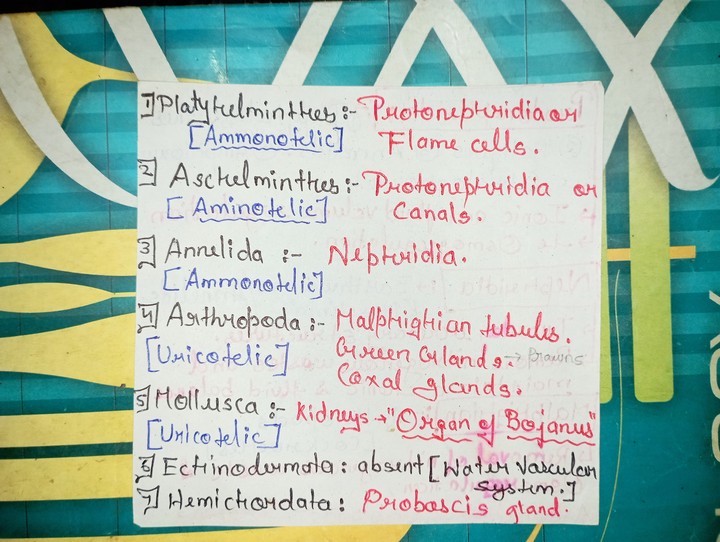 1] Platyhelminthes :- Protonephridia or
[Ammonotelic] Flame cells.
2] Aschelminthes :- Protonephridia or
[Aminotelic] Canals.
3] Annelida :- Nephridia.
[Ammonotelic]
4] Arthropoda :- Malphighian tubules.
[Uricotelic] Green Glands. → Prawns
Coxal glands.
5] Mollusca :- Kidneys → "Organ of Bojanus"
[Uricotelic]
6] Echinodermata : absent [Water Vascular
System.]
7] Hemichordata : Proboscis gland.